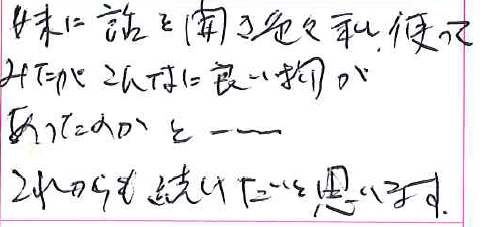 妹に話を聞き色々試し使って
みたがこんなに良い物が
あったのかと――
これからも続けたいと思います。